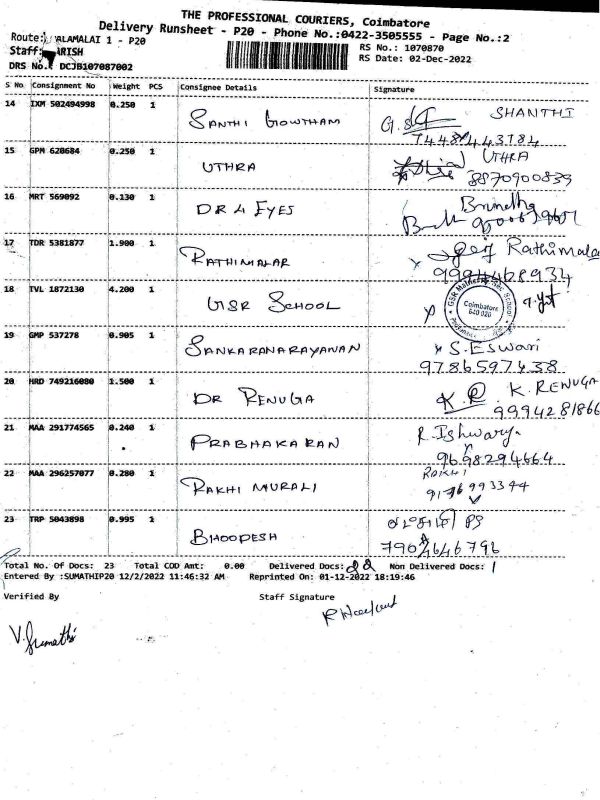 THE PROFESSIONAL COURIERS, Coimbatore
Delivery Runsheet - P20 - Phone No.:0422-3505555 - Page No.:2
Route: ALAMALAI 1 - P20
RS No.: 1070870
Staff: ARISH
RS Date: 02-Dec-2022
DRS No.: DCJB107087002
S No Consignment No Weight PCS Consignee Details Signature
14 IXM 502494998 0.250 1 SANTHI GOWTHAM G.S SHANTHI
15 GPM 620684 0.250 1 UTHRA UTHRA
8870900839
16 MRT 569092 0.130 1 DR 4 EYES Brindha
17 TDR 5381877 1.900 1 RATHIMALAR Rathimalar
9994468934
18 TVL 1872130 4.200 1 GSR SCHOOL
GSR Matric School Coimbatore
19 GMP 537278 0.905 1 SANKARANARAYANAN S. Eswari
9786597438
20 HRD 749216080 1.500 1 DR RENUGA K.R K. RENUGA
9994281866
21 MAA 291774565 0.240 1 PRABHAKARAN R. Ishwarya
9698294664
22 MAA 296257077 0.280 1 RAKHI MURALI RAKHI
23 TRP 5043898 0.995 1 BHOOPESH
7904646796
Total No. Of Docs: 23 Total COD Amt: 0.00 Delivered Docs: 22 Non Delivered Docs: 1
Entered By :SUMATHIP20 12/2/2022 11:46:32 AM Reprinted On: 01-12-2022 18:19:46
Verified By Staff Signature
V. Sumathi